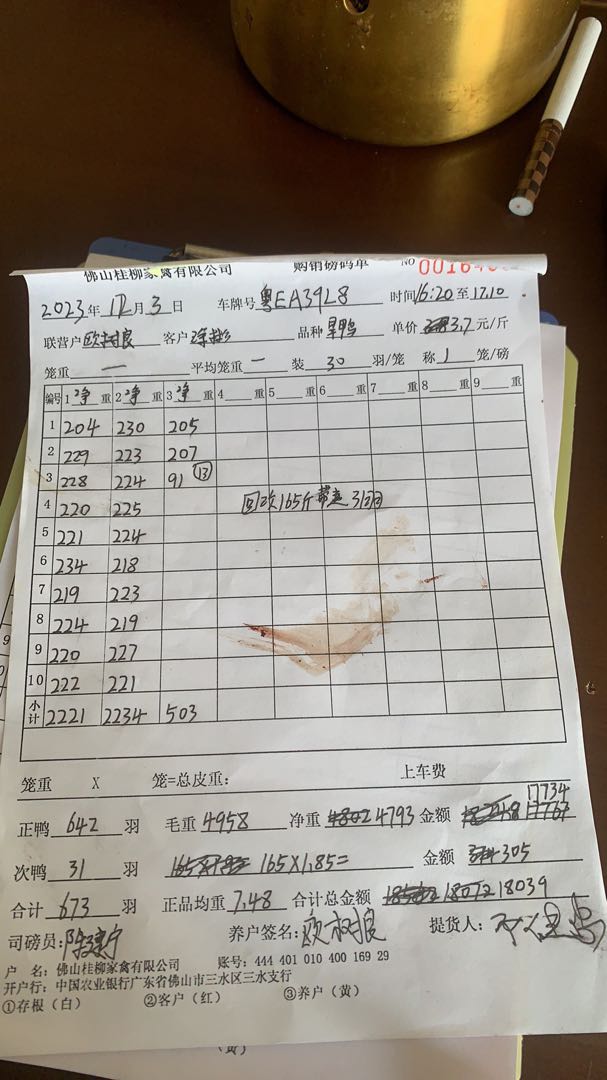 佛山桂柳家禽有限公司 购销磅码单 NO 00164
2023年 12月 3日 车牌号 粤EA39L8 时间16:20至17.10
联营户 欧树良 客户 品种 单价 3.7元/斤
笼重 一 平均笼重 一 装 30 羽/笼 称 1 笼/磅
编号 1 净 重 2 净 重 3 净 重 4 重 5 重 6 重 7 重 8 重 9 重
1 204 230 205
2 229 223 207
3 228 224 91 (13)
4 220 225 回次165斤 31羽
5 221 224
6 234 218
7 219 223
8 224 219
9 220 227
10 222 221
小计 2221 2234 503
笼重 X 笼=总皮重: 上车费
17734
正鸭 642 羽 毛重 4958 净重 4793 金额 17767
次鸭 31 羽 165X1.85= 金额 305
合计 673 羽 正品均重 7.48 合计总金额 18012 18039
司磅员: 养户签名: 欧树良 提货人:
户 名: 佛山桂柳家禽有限公司 账号: 444 401 010 400 169 29
开户行: 中国农业银行广东省佛山市三水区三水支行
①存根(白) ②客户(红) ③养户(黄)
(黄)